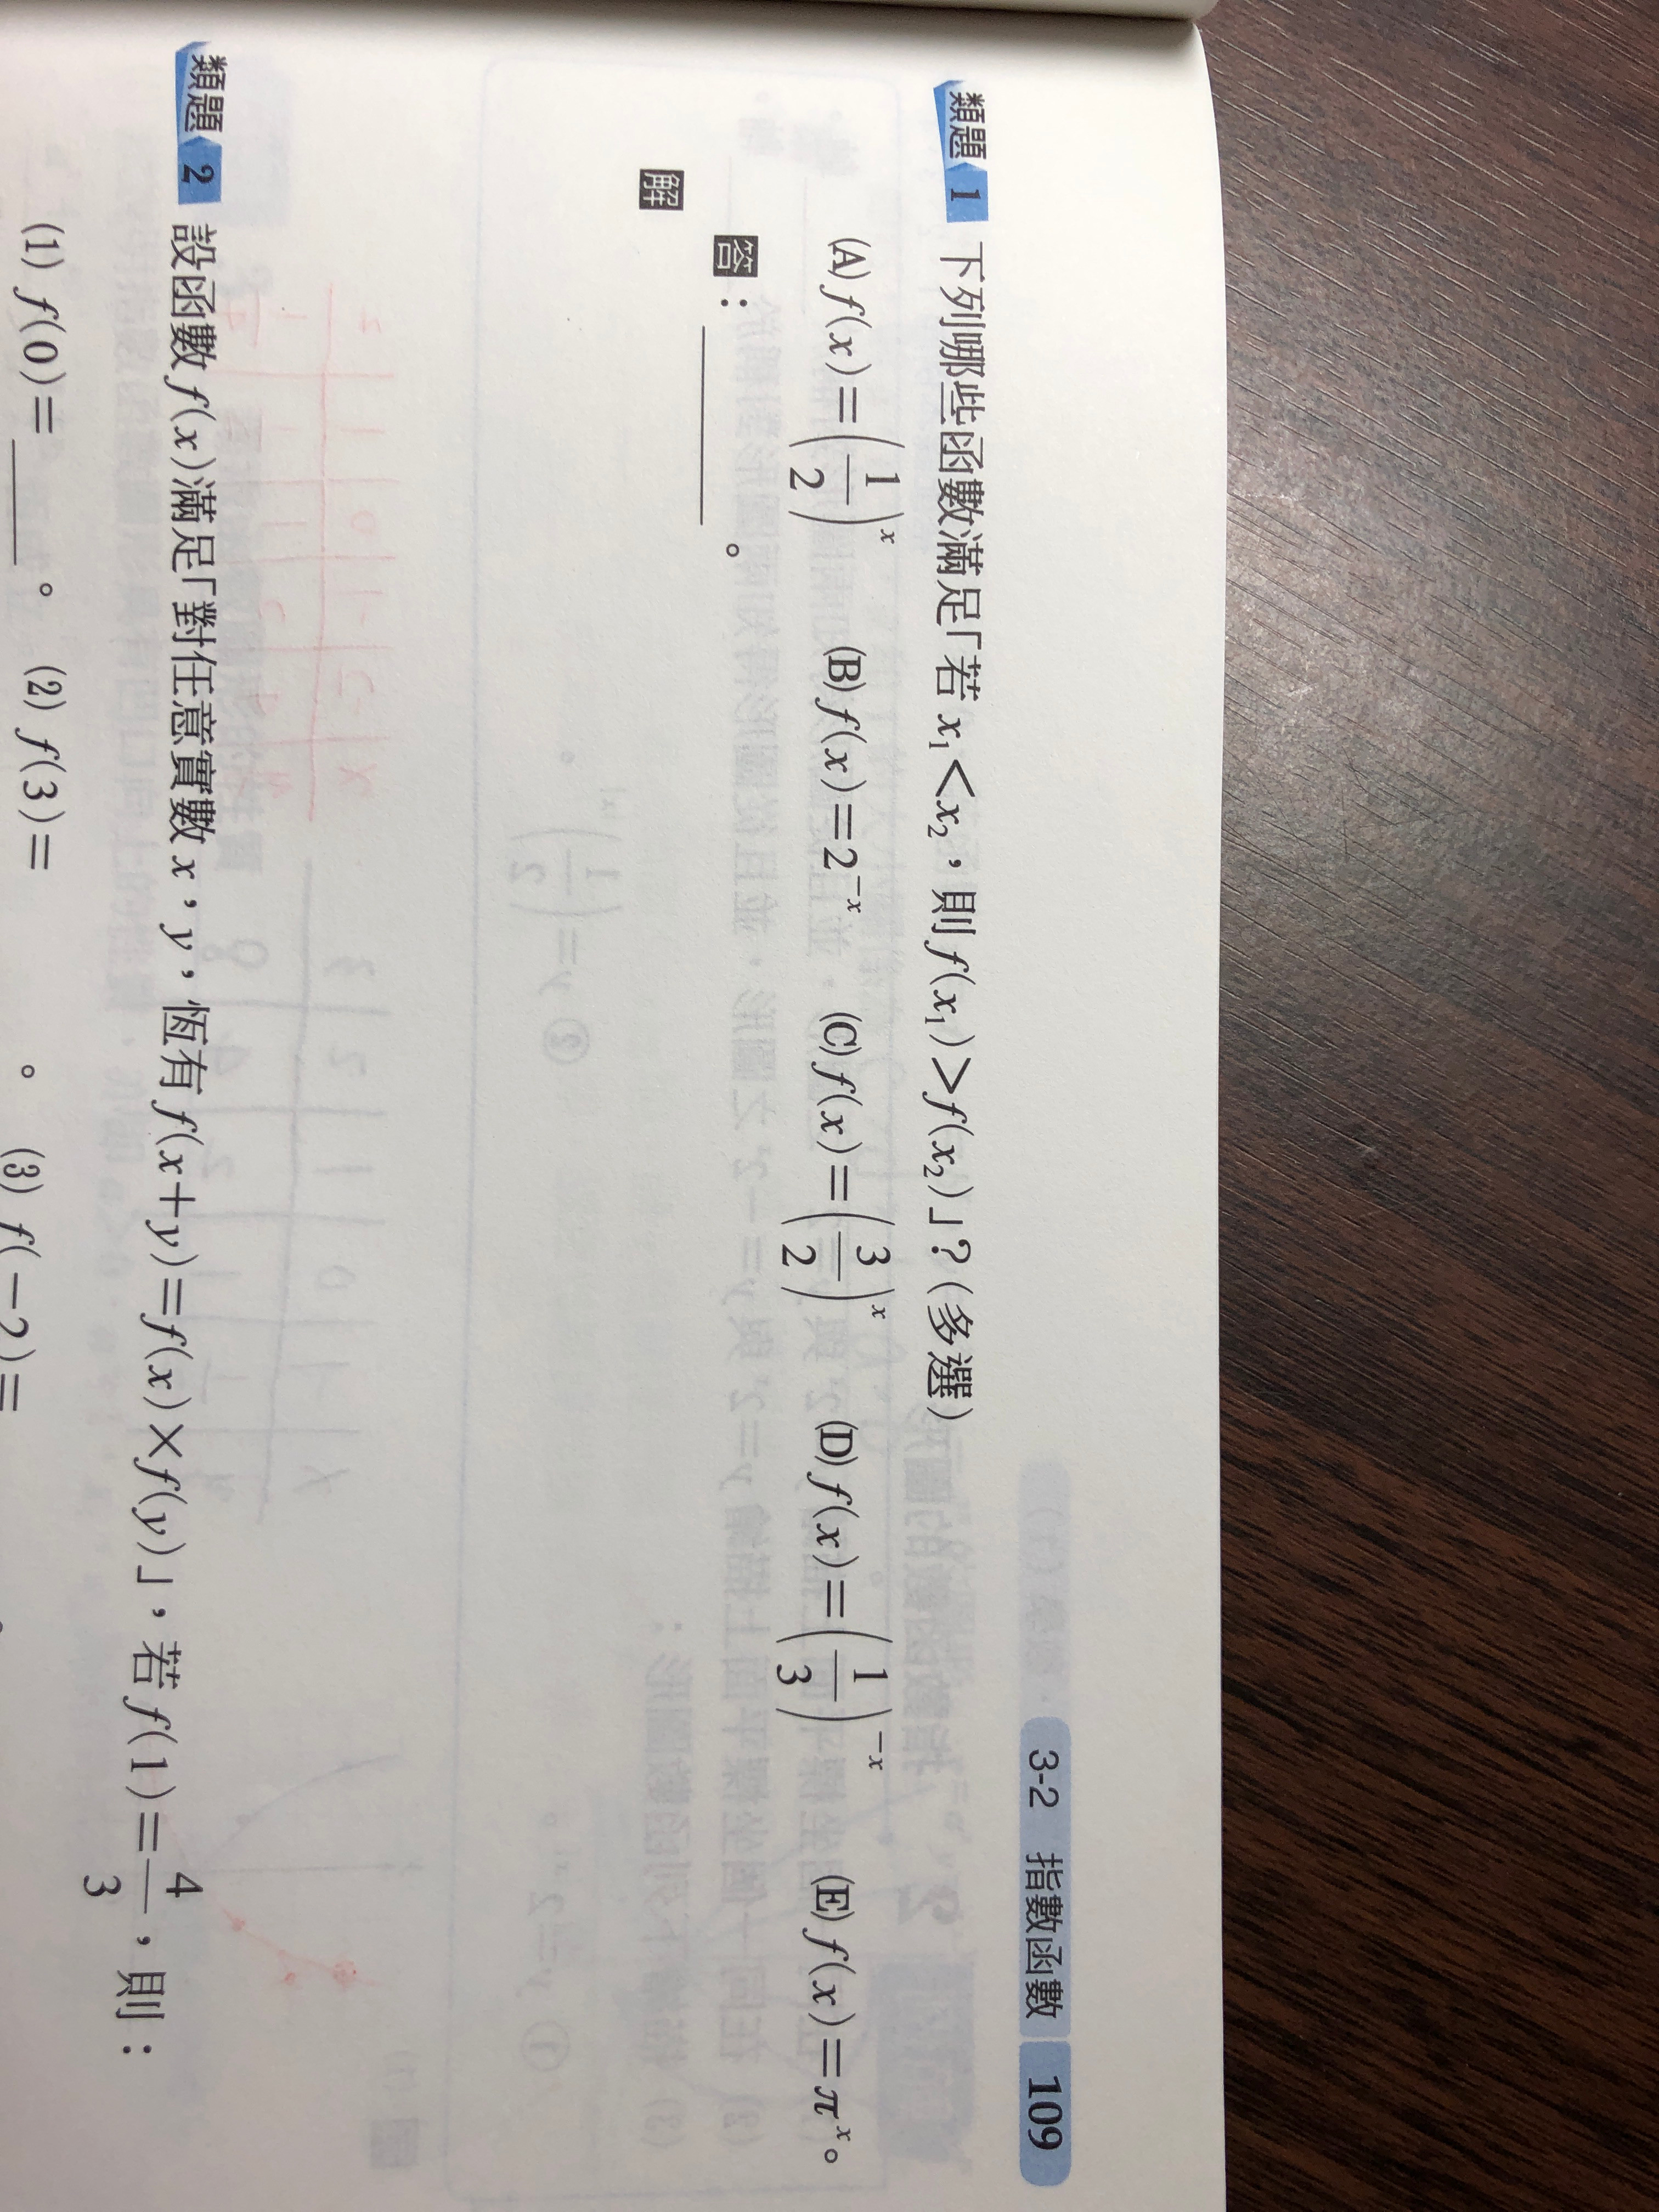 3-2 指數函數 109
類題 1 下列哪些函數滿足「若 x₁<x₂,則 f(x₁)>f(x₂)」?(多選)
(A) f(x)=(1/2)^x (B) f(x)=2^{-x} (C) f(x)=(3/2)^x (D) f(x)=(1/3)^{-x} (E) f(x)=π^x。
答:______。
解
類題 2 設函數 f(x)滿足「對任意實數 x,y,恆有 f(x+y)=f(x)×f(y)」,若 f(1)=4/3,則:
(1) f(0)=______。 (2) f(3)= 。 (3) f(-2)=